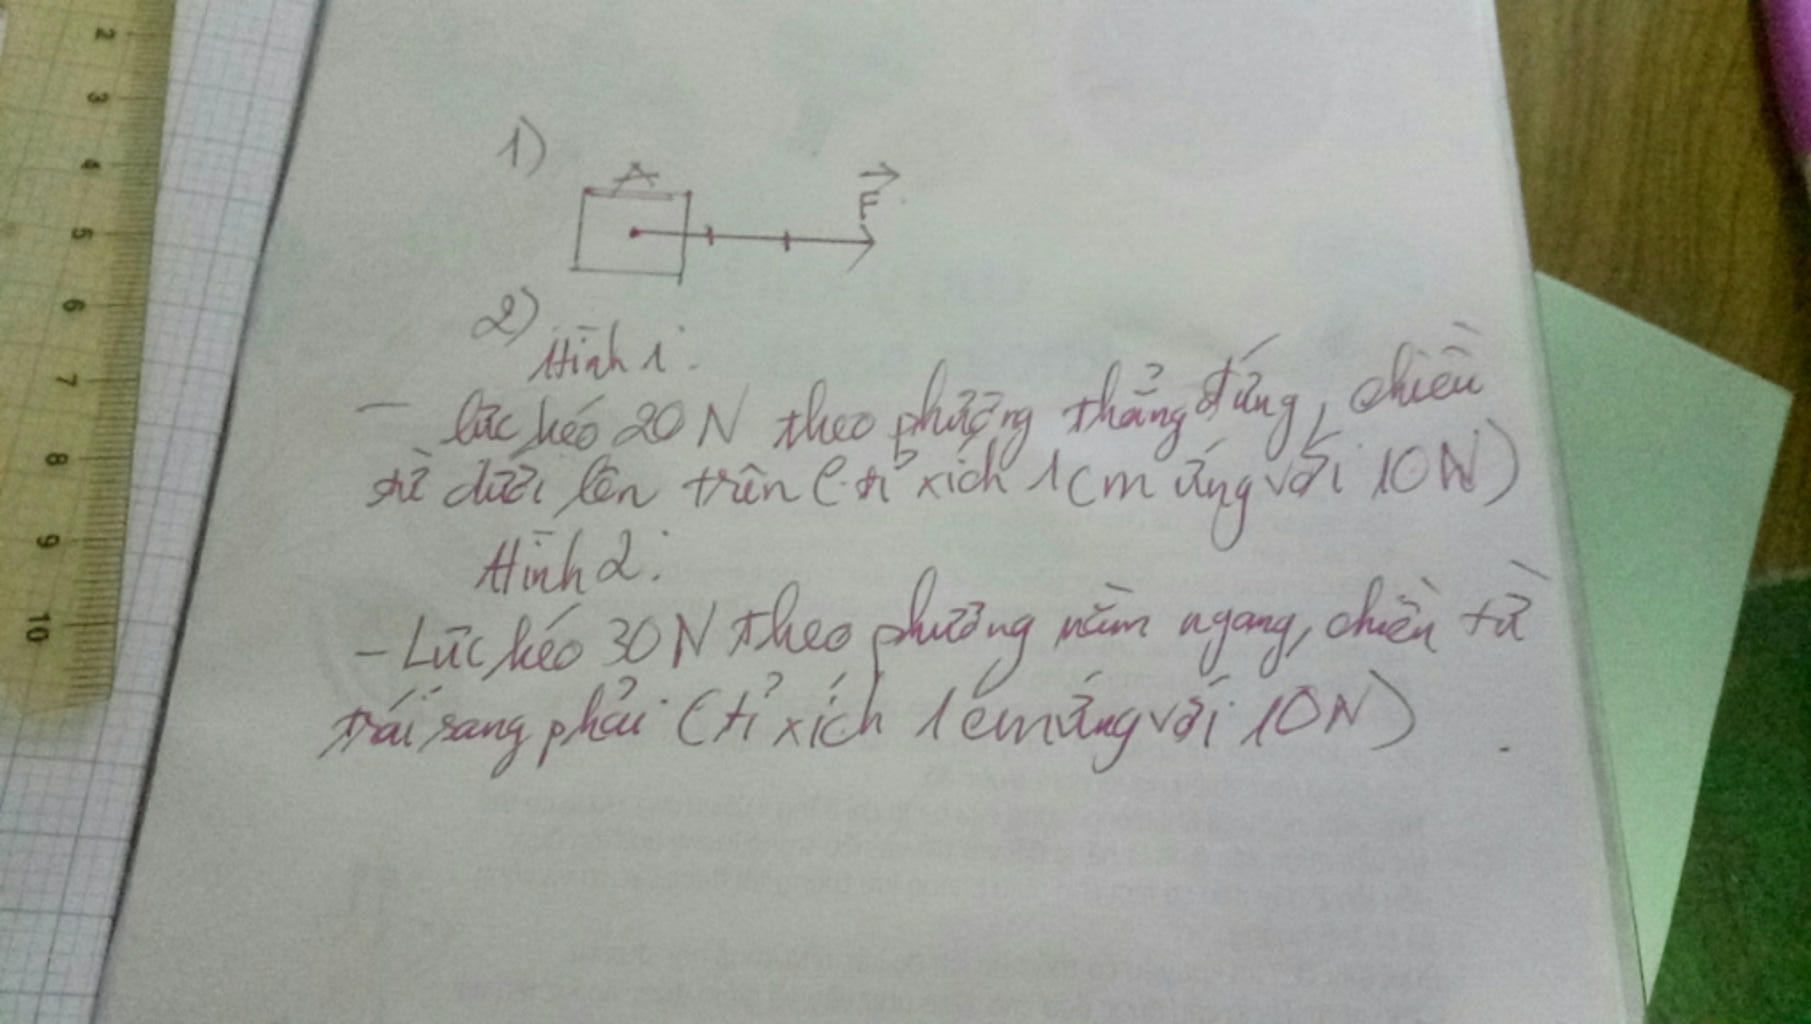 2
3
4
5
6
7
8
9
10
1)
A
F
2)
Hình 1:
- lực kéo 20N theo phương thẳng đứng, chiều
từ dưới lên trên (tỉ xích 1cm ứng với 10N)
Hình 2:
- Lực kéo 30N theo phương nằm ngang, chiều từ
trái sang phải (tỉ xích 1cm ứng với 10N)